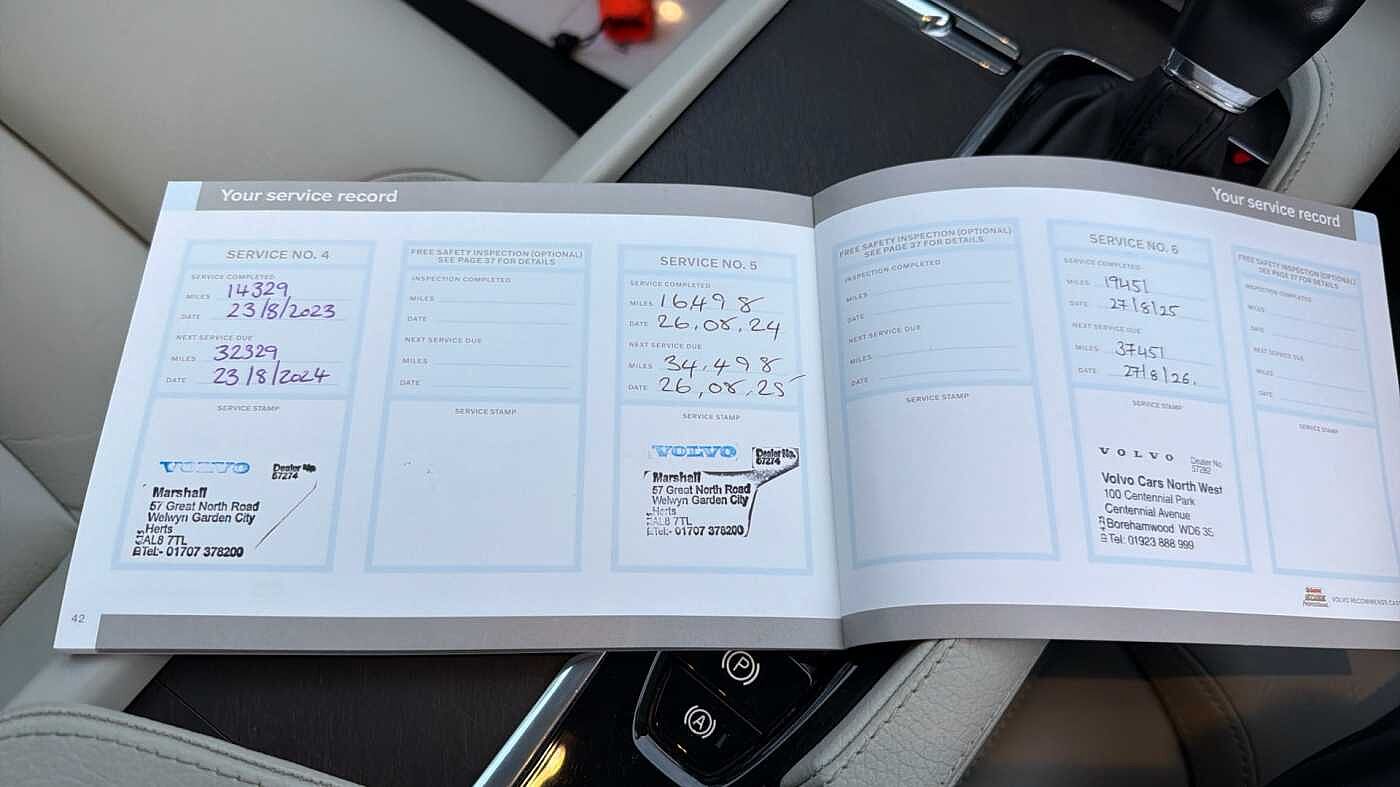 Your service record
SERVICE NO. 4
SERVICE COMPLETED
MILES 14329
DATE 23/8/2023
NEXT SERVICE DUE
MILES 32329
DATE 23/8/2024
SERVICE STAMP
VOLVO
Dealer No
57274
Marshall
57 Great North Road
Welwyn Garden City
Herts
AL8 7TL
Tel:- 01707 378200
42
FREE SAFETY INSPECTION (OPTIONAL)
SEE PAGE 37 FOR DETAILS
INSPECTION COMPLETED
MILES
DATE
NEXT SERVICE DUE
MILES
DATE
SERVICE STAMP
SERVICE NO. 5
SERVICE COMPLETED
MILES 16498
DATE 26.08.24
NEXT SERVICE DUE
MILES 34.498
DATE 26.08.25
SERVICE STAMP
VOLVO
Dealer No.
57274
Marshall
57 Great North Road
Welwyn Garden City
Herts
AL8 7TL
Tel:- 01707 378200
Your service record
FREE SAFETY INSPECTION (OPTIONAL)
SEE PAGE 37 FOR DETAILS
INSPECTION COMPLETED
MILES
DATE
NEXT SERVICE DUE
MILES
DATE
SERVICE STAMP
SERVICE NO. 6
SERVICE COMPLETED
MILES 19451
DATE 27/8/25
NEXT SERVICE DUE
MILES 37451
DATE 27/8/26.
SERVICE STAMP
VOLVO
Dealer No
57292
Volvo Cars North West
100 Centennial Park
Centennial Avenue
Borehamwood WD6 3S
Tel: 01923 888 999
FREE SAFETY INSPECTION (OPTIONAL)
SEE PAGE 37 FOR DETAILS
INSPECTION COMPLETED
MILES
DATE
NEXT SERVICE DUE
MILES
DATE
SERVICE STAMP
VOLVO RECOMMENDS
P
A